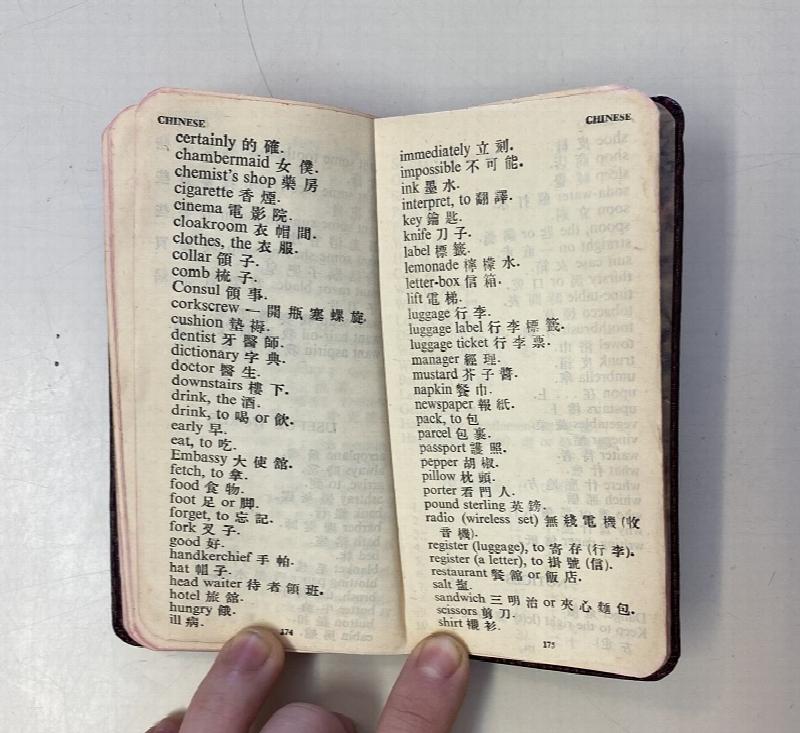 CHINESE
certainly 的 確.
chambermaid 女 僕.
chemist's shop 藥 房
cigarette 香 煙.
cinema 電 影 院.
cloakroom 衣 帽 間.
clothes, the 衣 服.
collar 領 子.
comb 梳 子.
Consul 領 事.
corkscrew 一 開 瓶 塞 螺 旋
cushion 墊 褥.
dentist 牙 醫 師.
dictionary 字 典.
doctor 醫 生.
downstairs 樓 下.
drink, the 酒.
drink, to 喝 or 飲.
early 早.
eat, to 吃.
Embassy 大 使 館.
fetch, to 拿.
food 食 物.
foot 足 or 脚.
forget, to 忘 記.
fork 叉 子.
good 好.
handkerchief 手 帕.
hat 帽 子.
head waiter 待 者 領 班.
hotel 旅 館.
hungry 餓.
ill 病.
174
CHINESE
immediately 立 刻.
impossible 不 可 能.
ink 墨 水.
interpret, to 翻 譯.
key 鑰 匙.
knife 刀 子.
label 標 籤.
lemonade 檸 檬 水.
letter-box 信 箱.
lift 電 梯.
luggage 行 李.
luggage label 行 李 標 籤.
luggage ticket 行 李 票.
manager 經 理.
mustard 芥 子 醬.
napkin 餐 巾.
newspaper 報 紙.
pack, to 包
parcel 包 裹.
passport 護 照.
pepper 胡 椒.
pillow 枕 頭.
porter 看 門 人.
pound sterling 英 鎊.
radio (wireless set) 無 綫 電 機 (收
音 機).
register (luggage), to 寄 存 (行 李).
register (a letter), to 掛 號 (信).
restaurant 餐 館 or 飯 店.
salt 鹽.
sandwich 三 明 治 or 夾 心 麵 包.
scissors 剪 刀.
shirt 襯 衫.
175